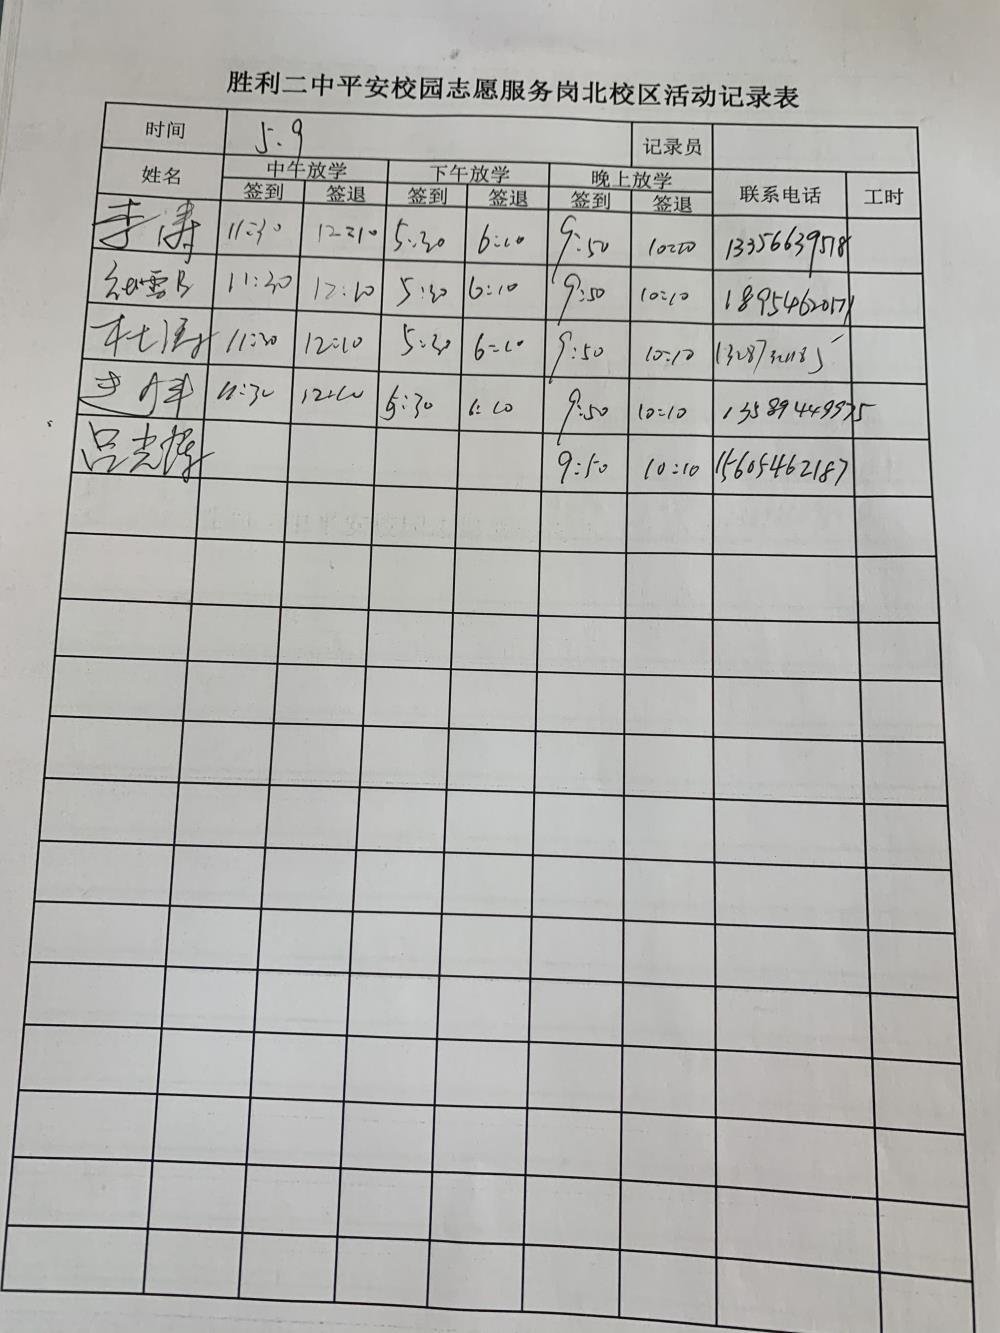 胜利二中平安校园志愿服务岗北校区活动记录表
时间 5.9 记录员
姓名 中午放学 下午放学 晚上放学 联系电话 工时
签到 签退 签到 签退 签到 签退
李涛 11:30 12:10 5:30 6:10 9:50 10:10 13356639518
11:30 12:10 5:30 6:10 9:50 10:10
11:30 12:10 5:30 6:10 9:50 10:10
11:30 12:10 5:30 6:10 9:50 10:10 13589449975
吕光 9:50 10:10 15605462187